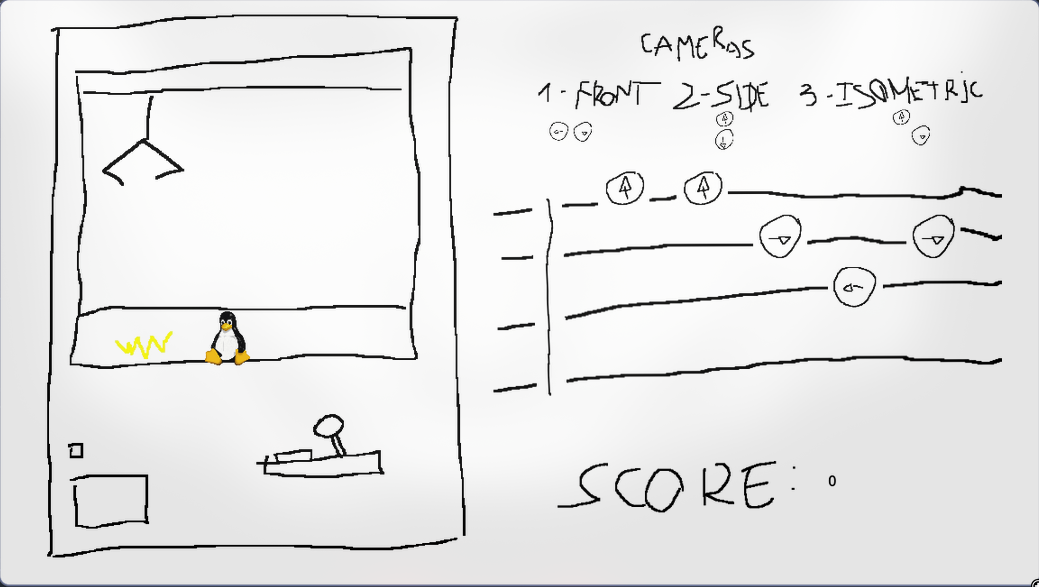 CAMERAS
1-FRONT 2-SIDE 3-ISOMETRIC
SCORE: 0